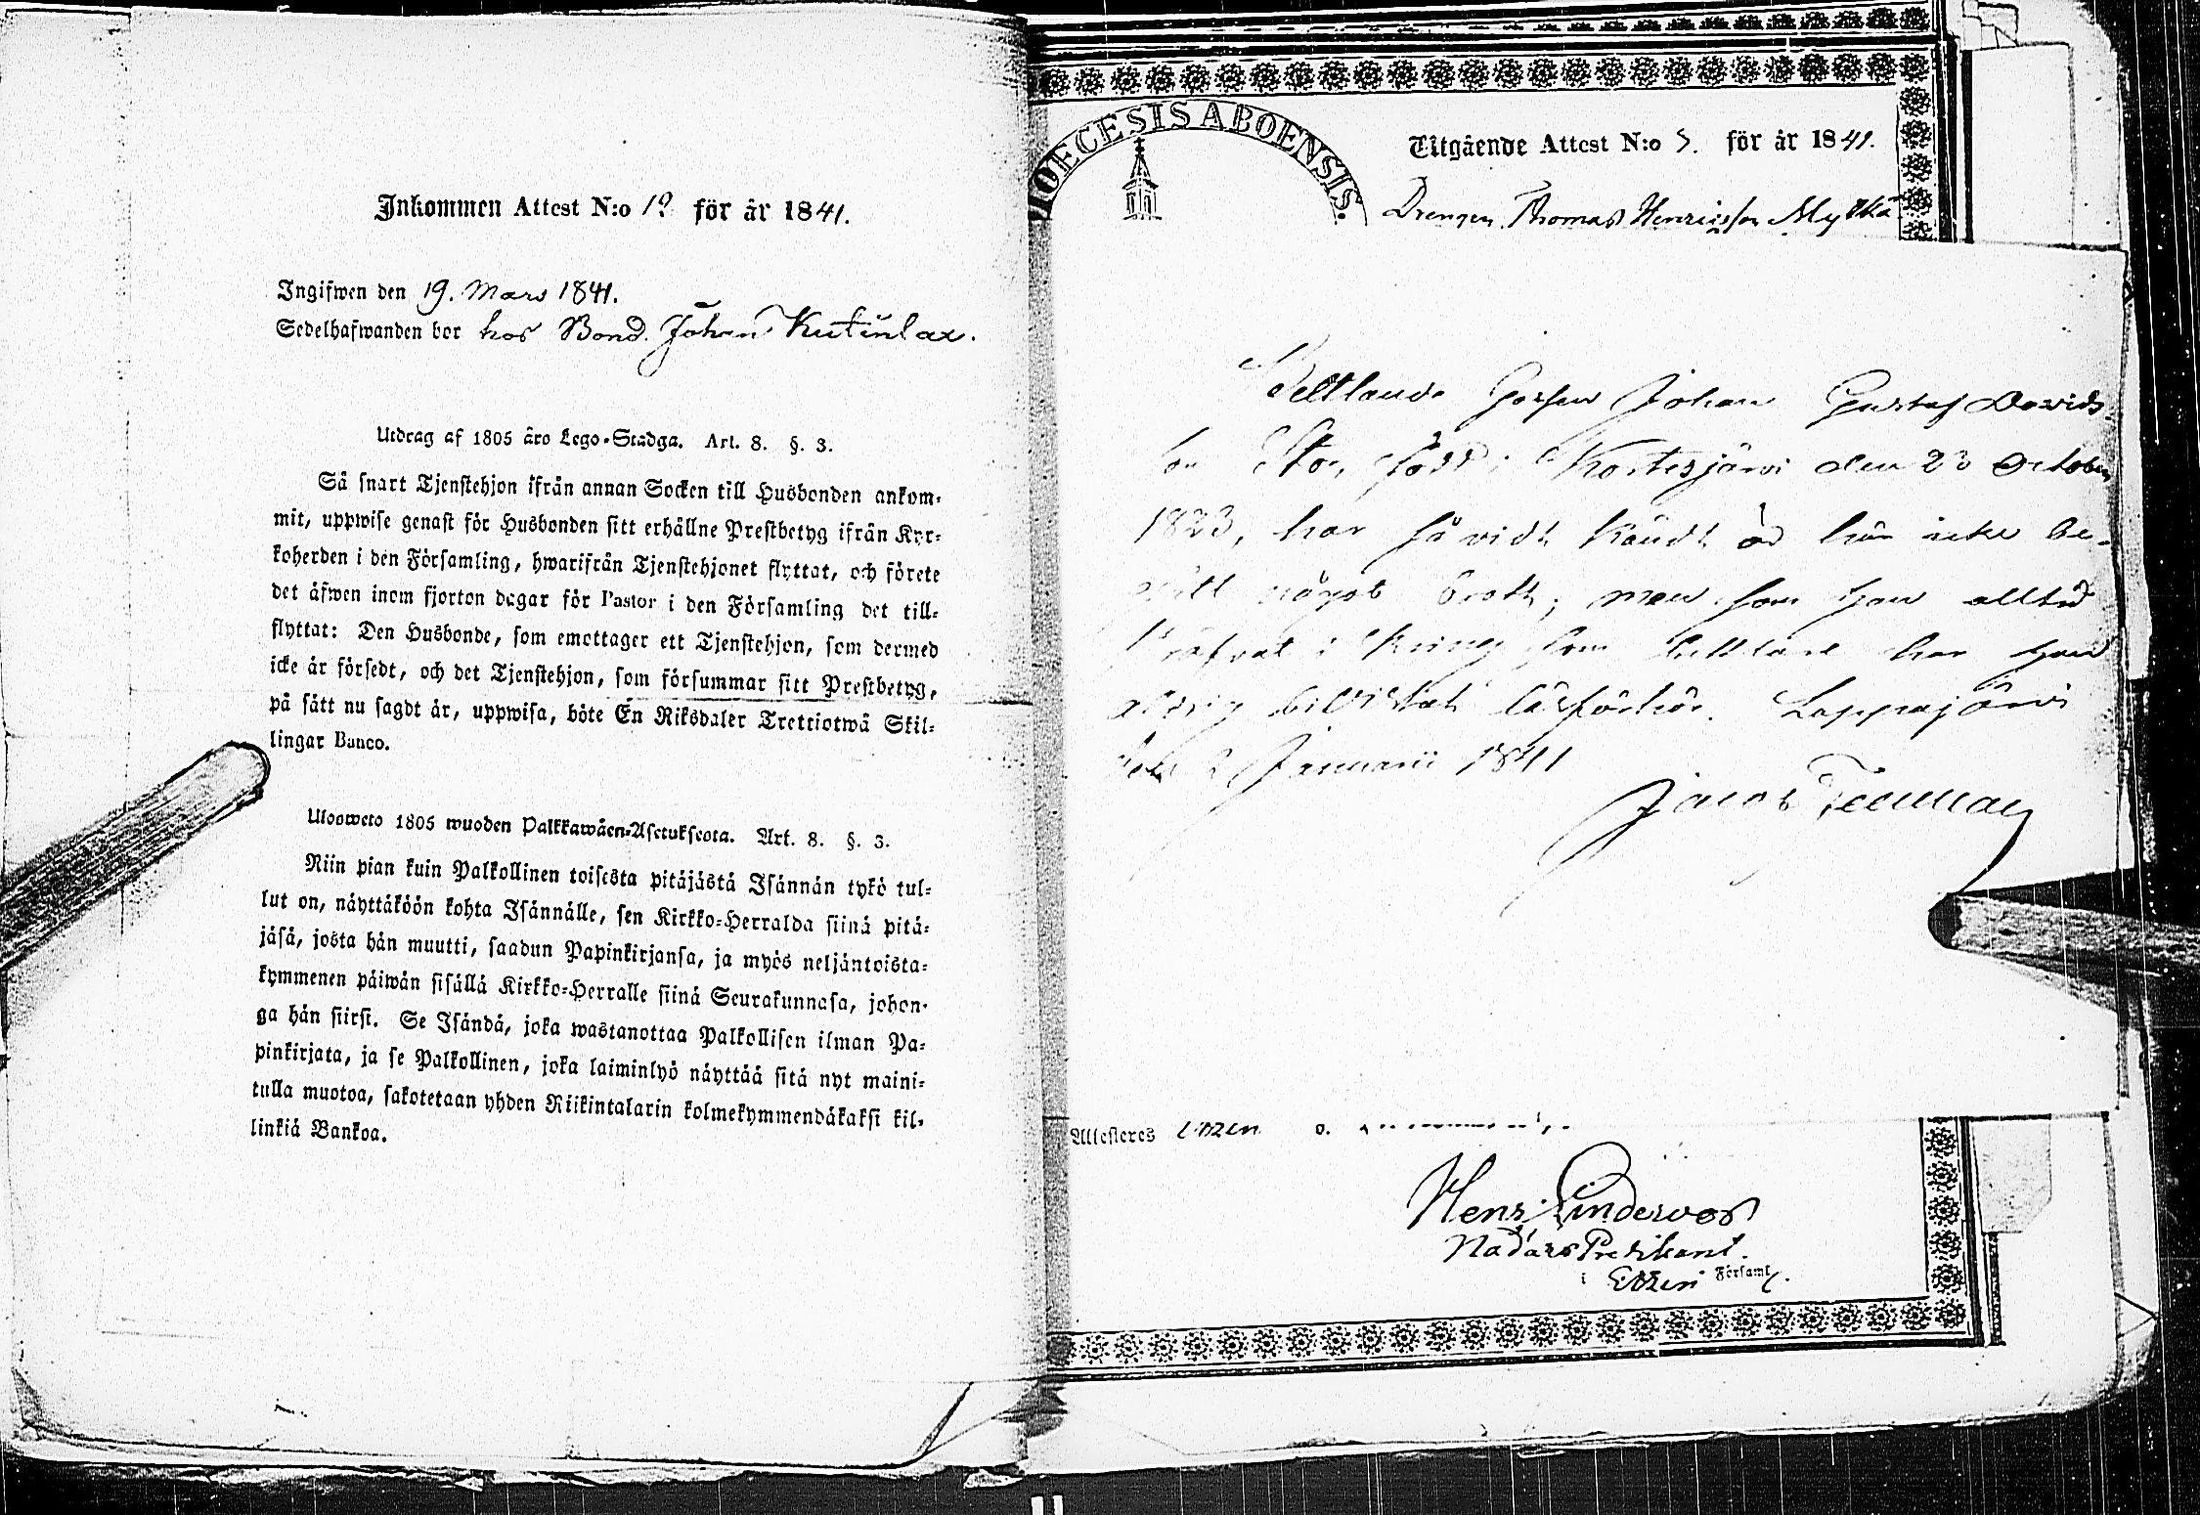 Inkommen Attest N:o 19 för år 1841.
Ingifwen den 19. Mars 1841.
Sedelhafwanden bor hos Bond. Johan Kutinlax.
Utdrag af 1805 års Lego-Stadga. Art. 8. §. 3.
Så snart Tjenstehjon ifrån annan Socken till Husbonden ankom-
mit, uppwise genast för Husbonden sitt erhållne Prestbetyg ifrån Kyr-
koherden i den Församling, hwarifrån Tjenstehjonet flyttat, och förete
det äfwen inom fjorton dagar för Pastor i den Församling det till-
flyttat: Den Husbonde, som emottager ett Tjenstehjon, som dermed
icke är försedt, och det Tjenstehjon, som försummar sitt Prestbetyg,
på sätt nu sagdt är, uppwisa, böte En Riksdaler Trettiotwå Skil-
lingar Banco.
Ulosweto 1805 wuoden Palkkawäen-Asetuksesta. Art. 8. §. 3.
Niin pian kuin Palkollinen toisesta pitäjästä Isännän tykö tul-
lut on, näyttäköön kohta Isännälle, sen Kirkko-Herralda siinä pitä-
jäsä, josta hän muutti, saadun Papinkirjansa, ja myös neljäntoista-
kymmenen päiwän sisällä Kirkko-Herralle siinä Seurakunnasa, johon-
ga hän siirsi. Se Isändä, joka wastanottaa Palkollisen ilman Pa-
pinkirjata, ja se Palkollinen, joka laiminlyö näyttää sitä nyt maini-
tulla muotoa, sakotetaan yhden Riikintalarin kolmekymmendäkaksi kil-
linkiä Bankoa.
DIOECESIS ABOENSIS.
Utgående Attest N:o 3. för år 1841.
Drengen Thomas Henricsson
Johan Gustaf Davids-
son född i Kortesjärvi den 23 October
1823, har så vidt kändt är här icke be-
gått något brott; men som han alltid
i kring som har han
aldrig bivistat läsförhör. Lappajärvi
den 2 Januarii 1841
Jacob
Attesteres Etzeri
Henr. Linderoos
Nådårs Predikant.
i Etzeri Församl.